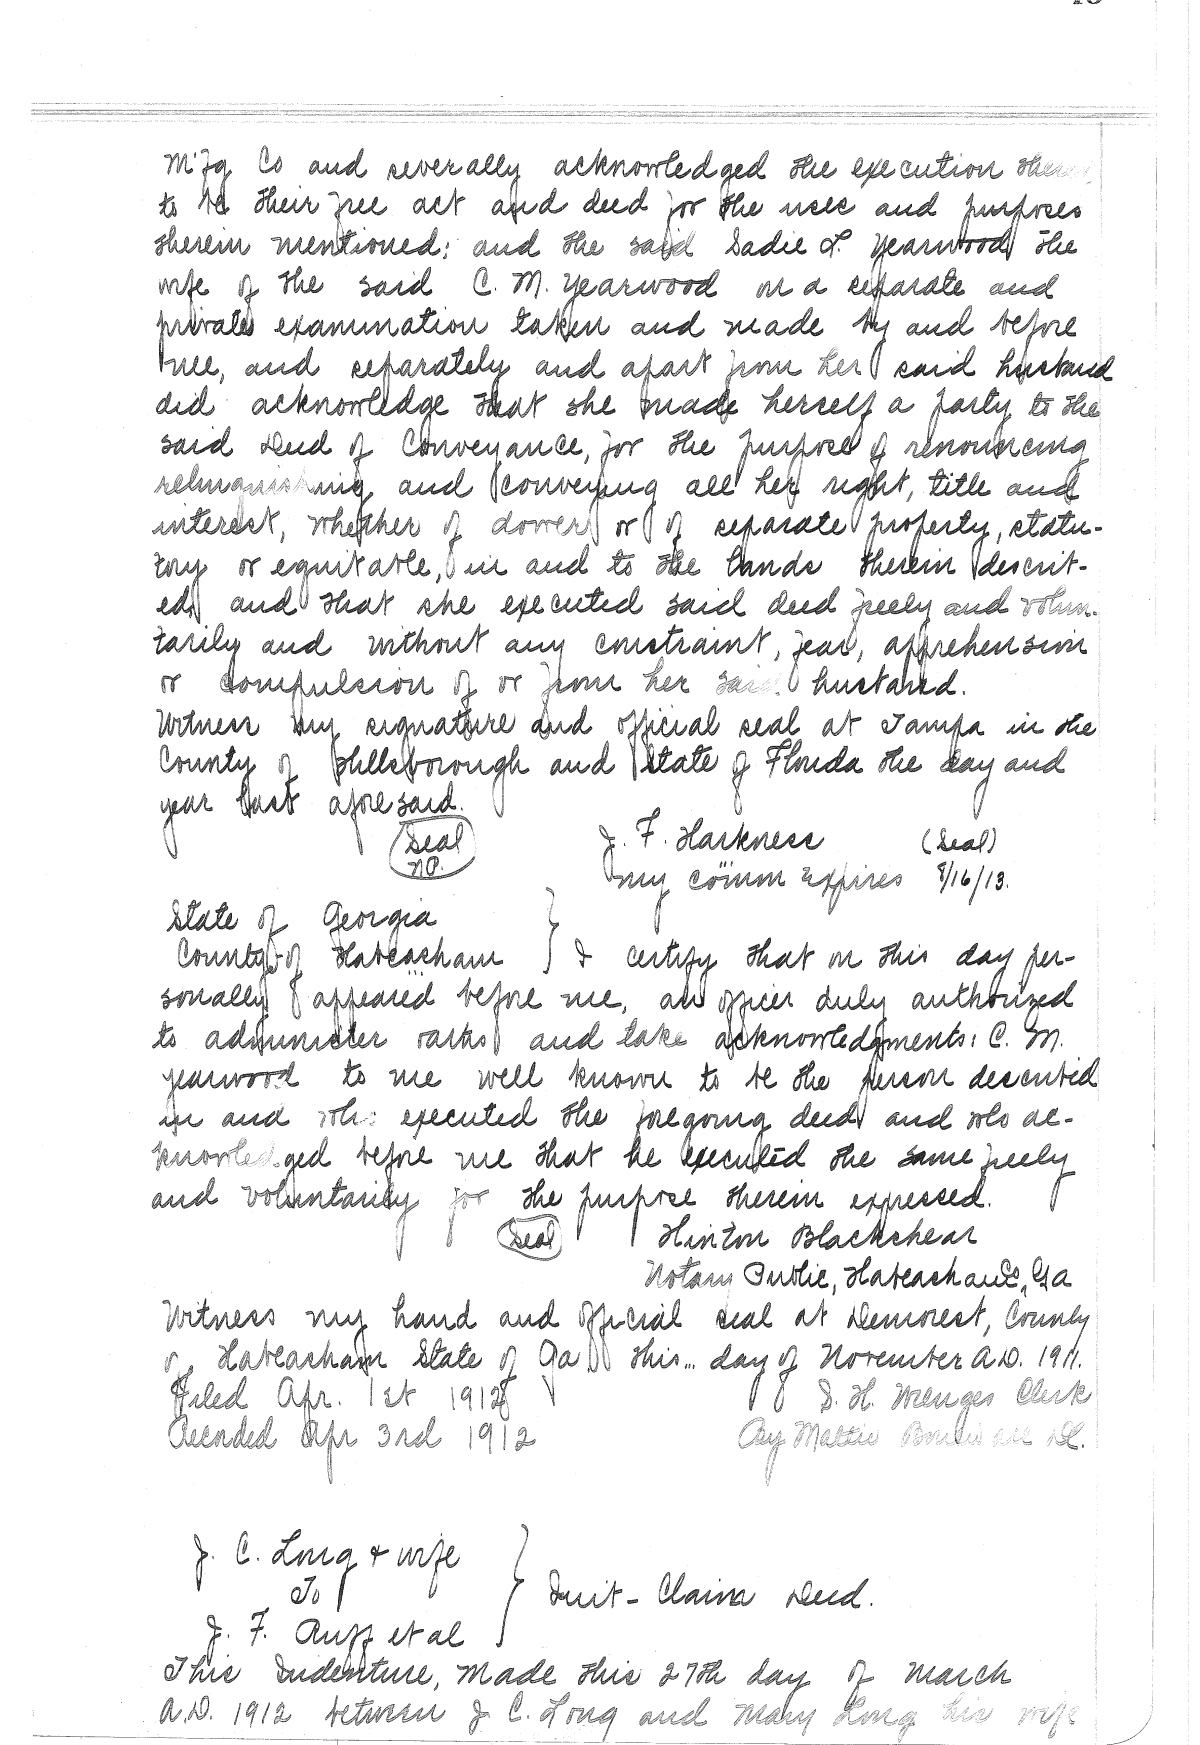 M'fg Co and severally acknowledged the execution thereof
to be their free act and deed for the uses and purposes
therein mentioned; and the said Sadie L. Yearwood the
wife of the said C. M. Yearwood on a separate and
private examination taken and made by and before
me, and separately and apart from her said husband
did acknowledge that she made herself a party to the
said Deed of Conveyance, for the purpose of renouncing
relinquishing and conveying all her right, title and
interest, whether of dower or of separate property, statu-
tory or equitable, in and to the lands therein describ-
ed, and that she executed said deed freely and volun-
tarily and without any constraint, fear, apprehension
or compulsion of or from her said husband.
Witness my signature and official seal at Tampa in the
County of Hillsborough and State of Florida the day and
year last aforesaid.
Seal N.P. J. F. Harkness (Seal)
my comm expires 8/16/13.
State of Georgia
County of Habeasham } I certify that on this day per-
sonally appeared before me, an officer duly authorized
to administer oaths and take acknowledgments: C. M.
Yearwood to me well known to be the person described
in and who executed the foregoing deed and who ac-
knowledged before me that he executed the same freely
and voluntarily for the purpose therein expressed.
Seal Hinton Blackshear
Notary Public, Habeasham Co., Ga
Witness my hand and official seal at Demorest, County
of Habeasham State of Ga this... day of November A.D. 1911.
Filed Apr. 1st 1912 D. H. Menges Clerk
Recorded Apr 3rd 1912 By Mattie D.C.
J. C. Long & wife
To } Quit-Claim Deed.
J. F. Ruff et al
This Indenture, Made this 27th day of March
A.D. 1912 between J C. Long and Mary Long his wife